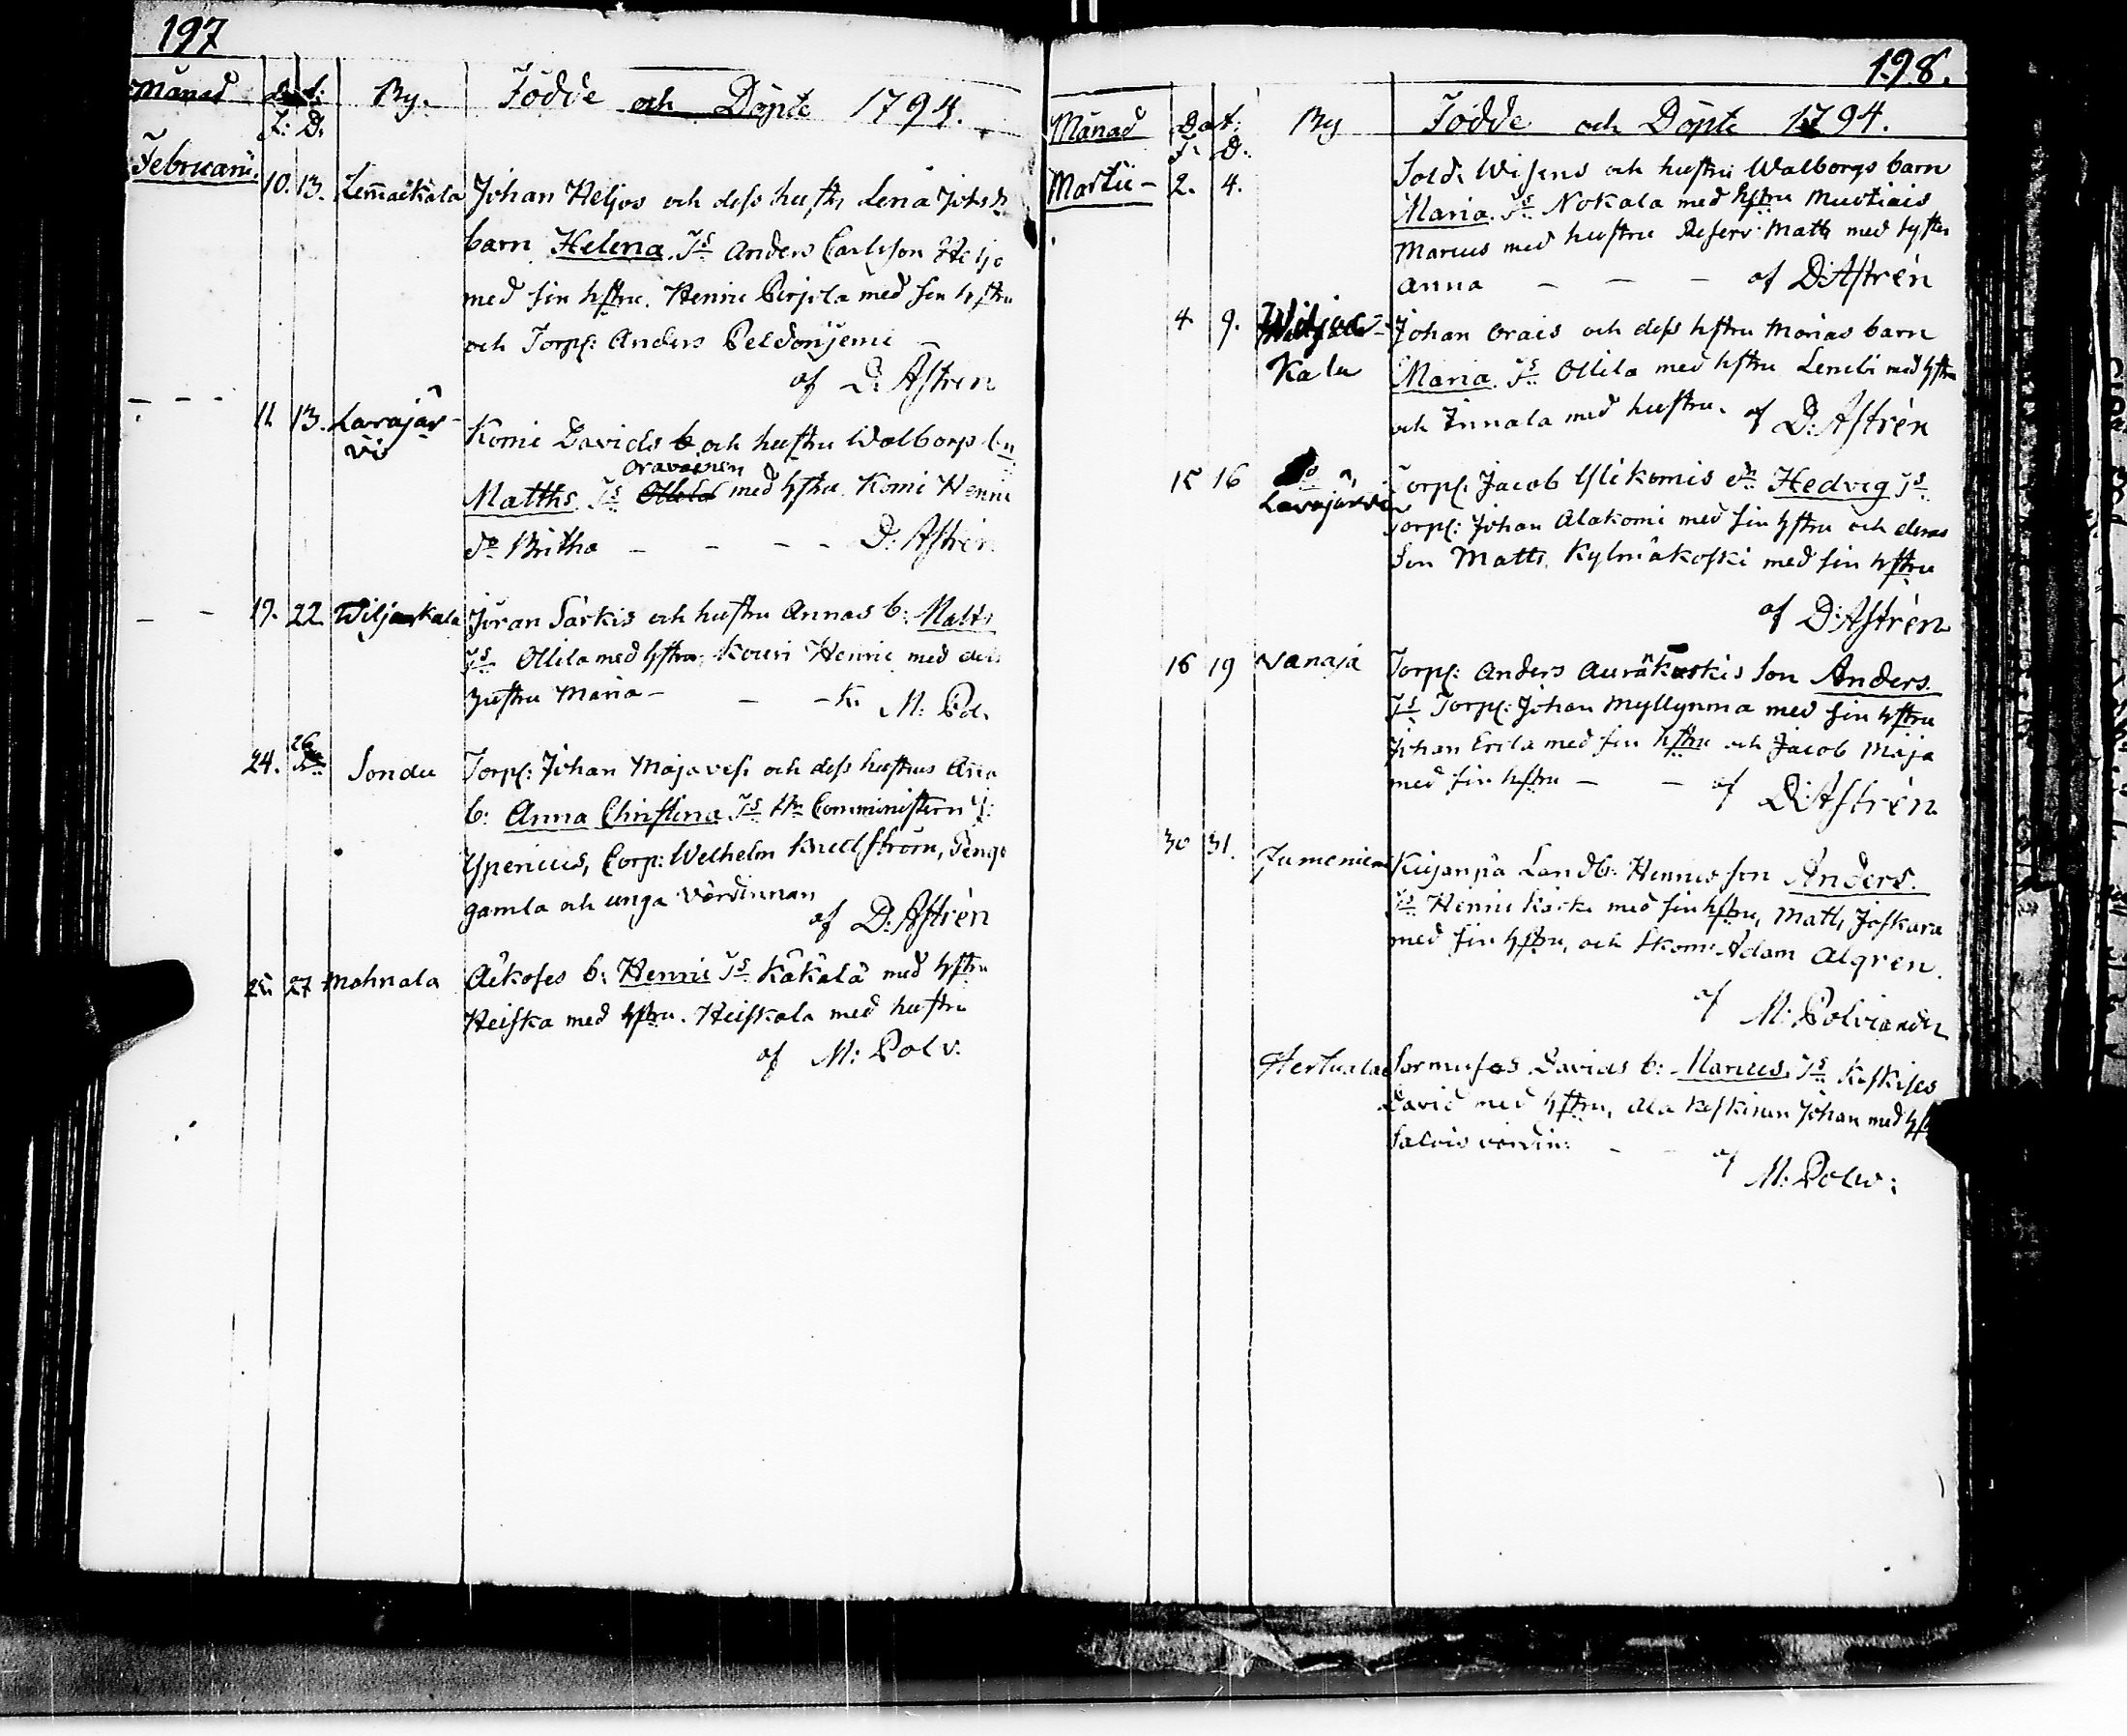 197
Månad Dat: By. Födde och Döpte 1794.
F: D.
Februarii. 10. 13. Lem̄aekala Johan Heljos och dess hustr. Lena Johs
barn Helena. Ts Anders Carlsson Heljo
med sin hstru. Henric Perjola med sin hstru
och Torp: Anders Peldonjemi
af D: Astren
11. 13. Lavajärvi Komi Davids b. och hustru Walborgs bn
Oravainen
Matths Ts med hstru. Komi Henric
do Britha - - - - D: Astrén
19. 22. Wiljackala Jöran Särkis och hustru Annas b: Matts
Ts Ollila med hstru, Kouri Henric med dess
hustru Maria - - - M: Pol.
24. 26 Sondu Torp: Johan Majavesi och dess hustrus Aña
b: Anna Christina Ts Hr Commministern
Ypericus, Corp: Welhelm Knutström, Pengo
gamla och unga värdinnan
af D: Astrén
25. 27 Mahnala Äikoses b: Henric Ts Käkälä med hstru
Heiska med hstru. Heiskala med hustru
af M: Polv.
198.
Månad Dat. By Födde och Döpte 1794.
F: D:
Martii - 2. 4. Sold: Wisens och hustru Walborgs barn
Maria. Ts Nokala med hstru Muotiais
Marcus med hustru Reserv: Matts med syster
Anna - - - af D: Astrén
4. 9. Wiljac- Johan Orais och dess hstru Marias barn
kala Maria. Ts Ollila med hstru Lembi med hstru
och Innala med hustru. af D: Astrén
15 16 Lavajärvi Torp: Jacob Ylikomis dr Hedvig Ts
Torp: Johan Alakomi med sin hstru och deras
Son Matts. Kylmäkoski med sin hstru
af D: Astrén
16 19 Vanaja Torp: Anders Auränkoskis Son Anders.
Ts Torp: Johan Myllynma med sin hstru
Johan Erila med sin hstru och Jacob Maja
med sin hstru - - af D: Astrén
30 31. Jumenien Kiijanpä Landb: Henrics son Anders.
Ts Henric Kärki med sin hstru, Matts Joskara
med sin hstru, och Skom: Adam Algren.
af M: Polviander
Hertuala Sormuses Davids b: Marcus. Ts Keskises
David med hstru, Ala Keskinen Johan med hst
Salvis värdin: - - af
M: Polw: